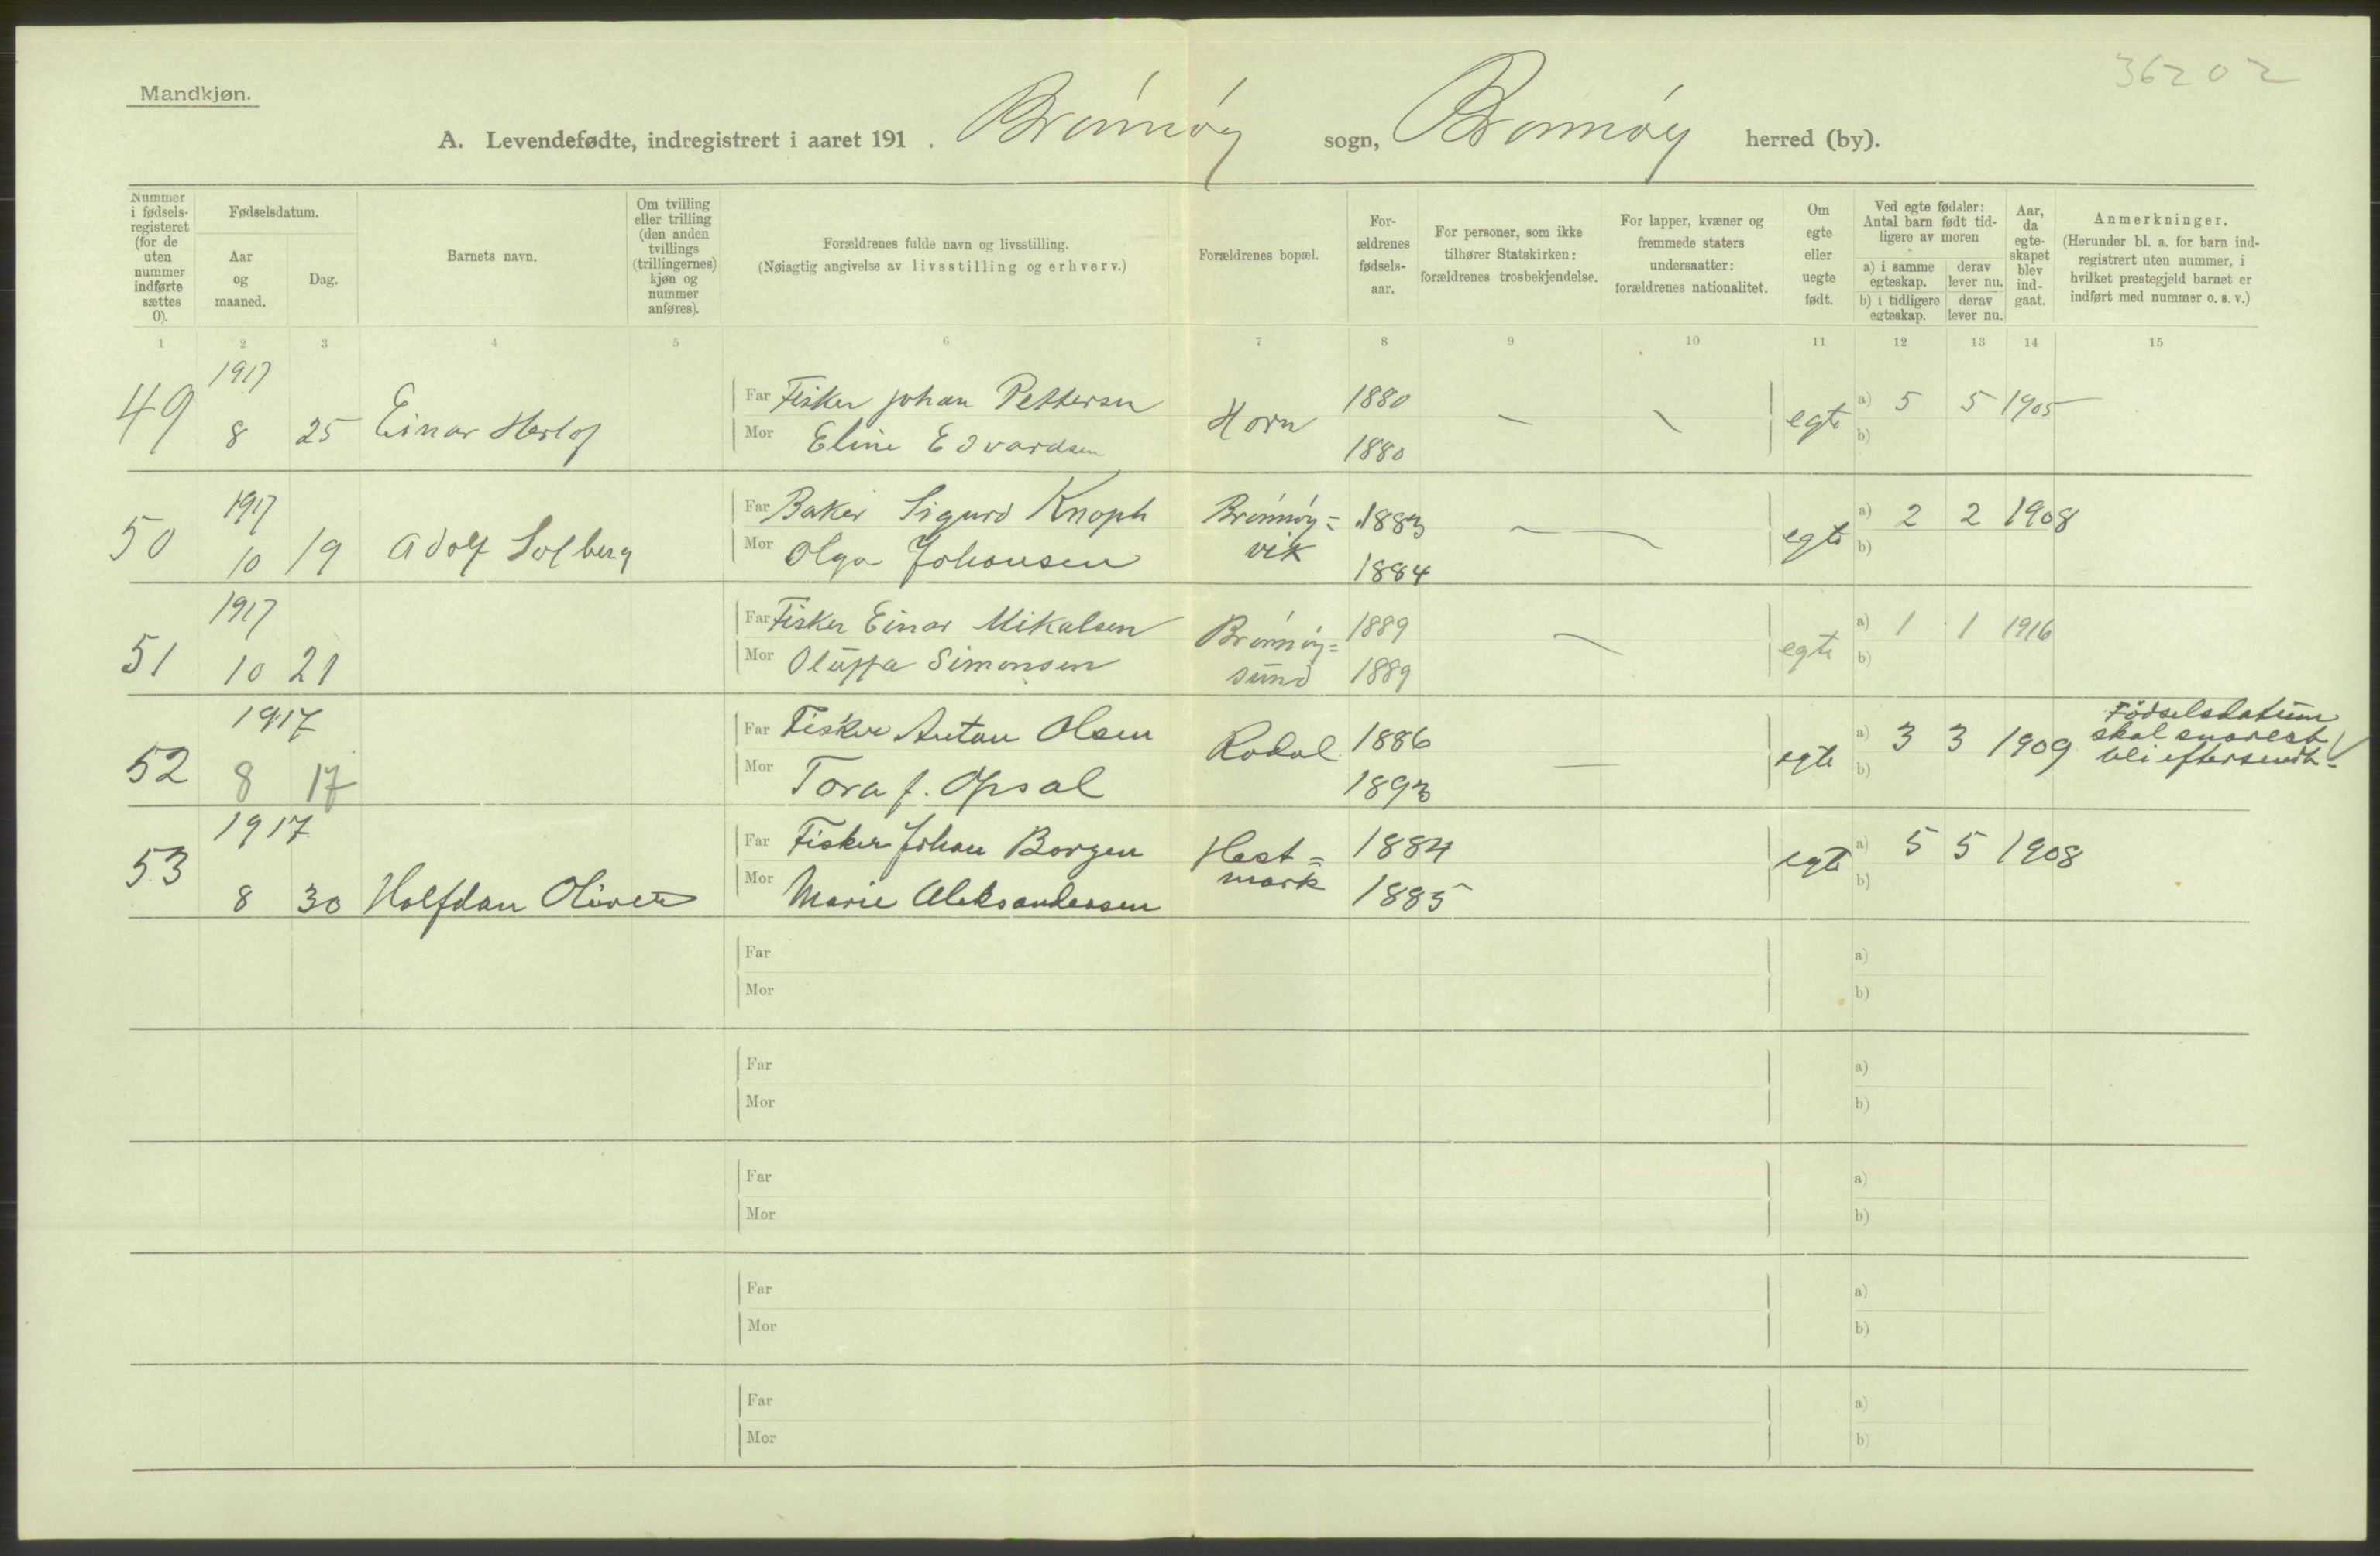 36202
Mandkjøn.
A. Levendefødte, indregistrert i aaret 191 . Brønnøy sogn, Brønnøy herred (by).
Nummer i fødsels-registeret (for de uten nummer indførte sættes 0).
Fødselsdatum.
Aar og maaned.
Dag.
Barnets navn.
Om tvilling eller trilling (den anden tvillings (trillingernes) kjøn og nummer anføres).
Forældrenes fulde navn og livsstilling.
(Nøiagtig angivelse av livsstilling og erhverv.)
Forældrenes bopæl.
For-ældrenes fødsels-aar.
For personer, som ikke tilhører Statskirken: forældrenes trosbekjendelse.
For lapper, kvæner og fremmede staters undersaatter: forældrenes nationalitet.
Om egte eller uegte født.
Ved egte fødsler: Antal barn født tid-ligere av moren
a) i samme egteskap.
derav lever nu.
b) i tidligere egteskap.
derav lever nu.
Aar, da egte-skapet blev ind-gaat.
Anmerkninger.
(Herunder bl. a. for barn ind-registrert uten nummer, i hvilket prestegjeld barnet er indført med nummer o. s. v.)
1 2 3 4 5 6 7 8 9 10 11 12 13 14 15
1917
49 8 25 Einar Herlof
Far Fisker Johan Pettersen
Mor Eline Edvardsen
Horn
1880
1880
egte a) 5 5 1905
b)
1917
50 10 19 Adolf Solberg
Far Baker Sigurd Knoph
Mor Olga Johansen
Brønnøy=
vik
1883
1884
egte a) 2 2 1908
b)
1917
51 10 21
Far Fisker Einar Mikalsen
Mor Oluffa Simonsen
Brønnøy=
sund
1889
1889
egte a) 1 1 1916
b)
1917
52 8 17
Far Fisker Anton Olsen
Mor Tora f. Opsal
Rodal
1886
1893
egte a) 3 3 1909
b)
Fødselsdatum
skal snarest
bli eftersendt.
1917
53 8 30 Halfdan Oliver
Far Fisker Johan Borgen
Mor Marie Aleksandersen
Hest=
mark
1884
1885
egte a) 5 5 1908
b)
Far a)
Mor b)
Far a)
Mor b)
Far a)
Mor b)
Far a)
Mor b)
Far a)
Mor b)